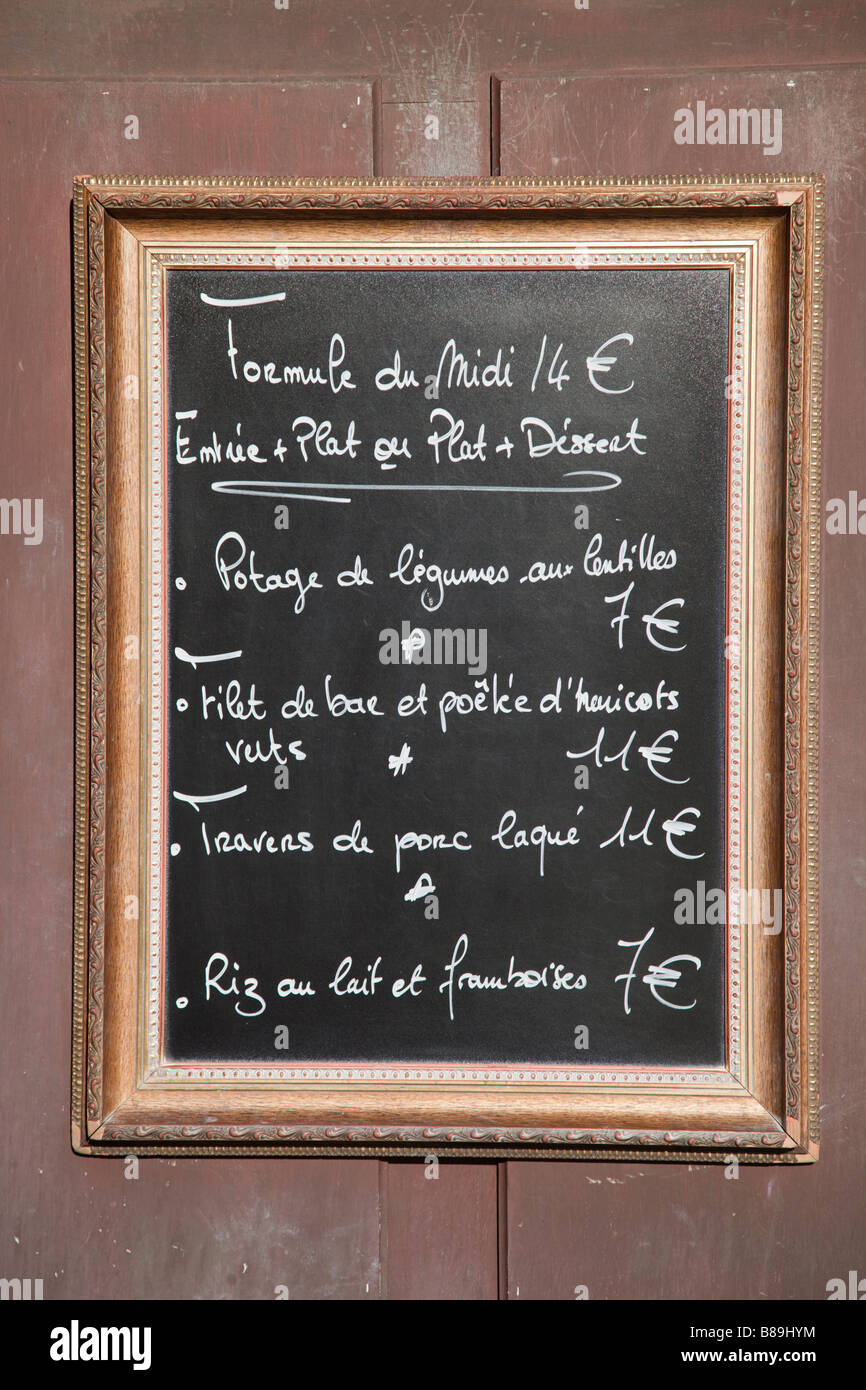 Formule du Midi 14 €
Entrée + Plat ou Plat + Déssert
• Potage de légumes aux lentilles
7 €
• Filet de bar et poêlée d'haricots
verts 11 €
• Travers de porc laqué 11 €
• Riz au lait et framboises 7 €
alamy
alamy
Image ID: B89HYM
www.alamy.com